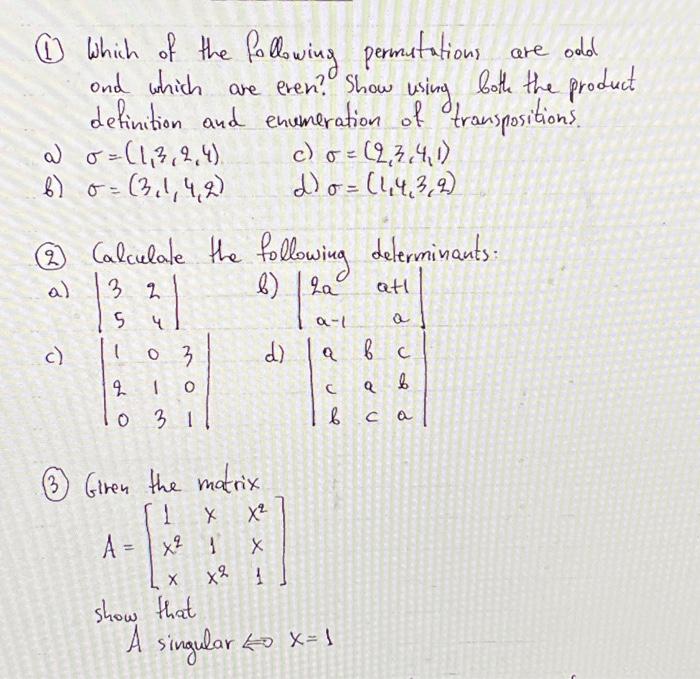 ① Which of the following permutations are odd
ond which are even? Show using both the product
definition and enumeration of transpositions.
a) σ = (1,3,2,4). c) σ = (2,3,4,1)
b) σ = (3,1,4,2) d) σ = (1,4,3,2)
② Calculate the following determinants:
a) | 3 2 | b) | 2a a+1 |
| 5 4 | | a-1 a |
c) | 1 0 3 | d) | a b c |
| 2 1 0 | | c a b |
| 0 3 1 | | b c a |
③ Given the matrix
[ 1 x x² ]
A = [ x² 1 x ]
[ x x² 1 ]
show that
A singular ⇔ x = 1